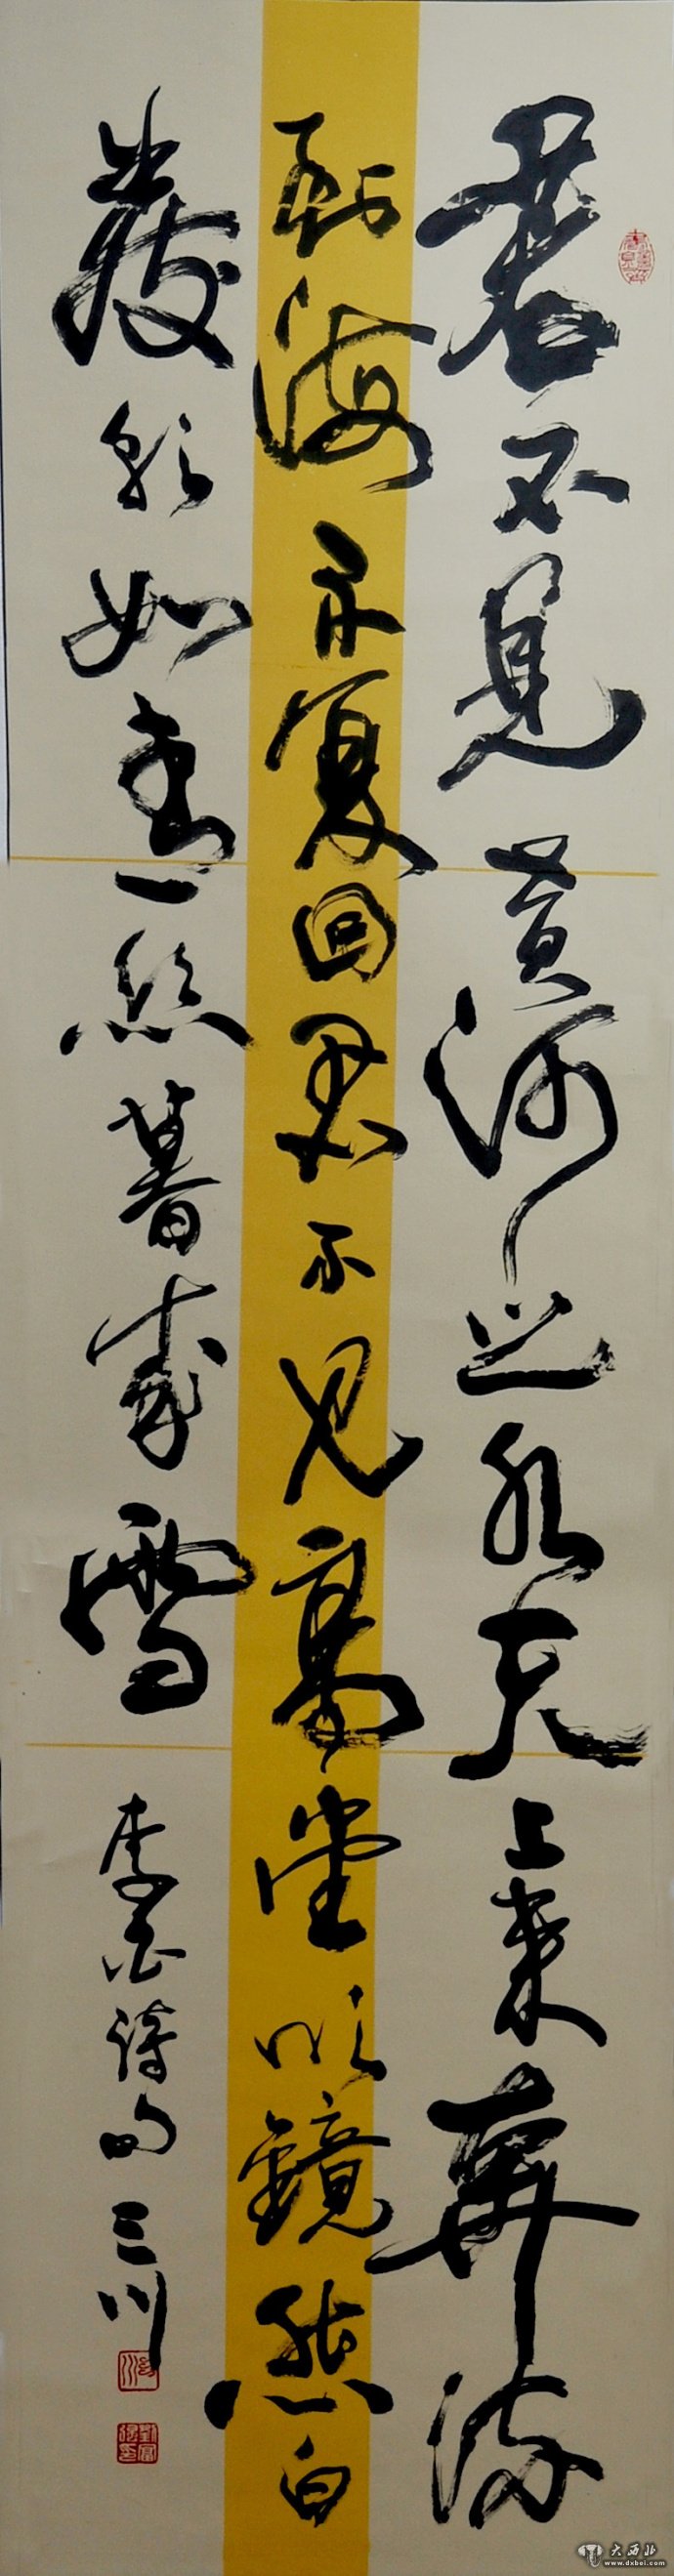 君不見黃河之水天上來奔流
到海不復回君不見高堂明鏡悲白
髮朝如青絲暮成雪
李白詩句 三川
大西北
www.dxbei.com